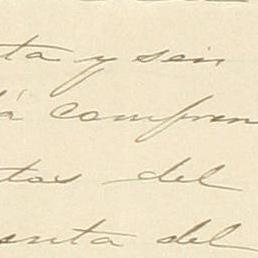 ta y sin
á compren
tas del
enta del